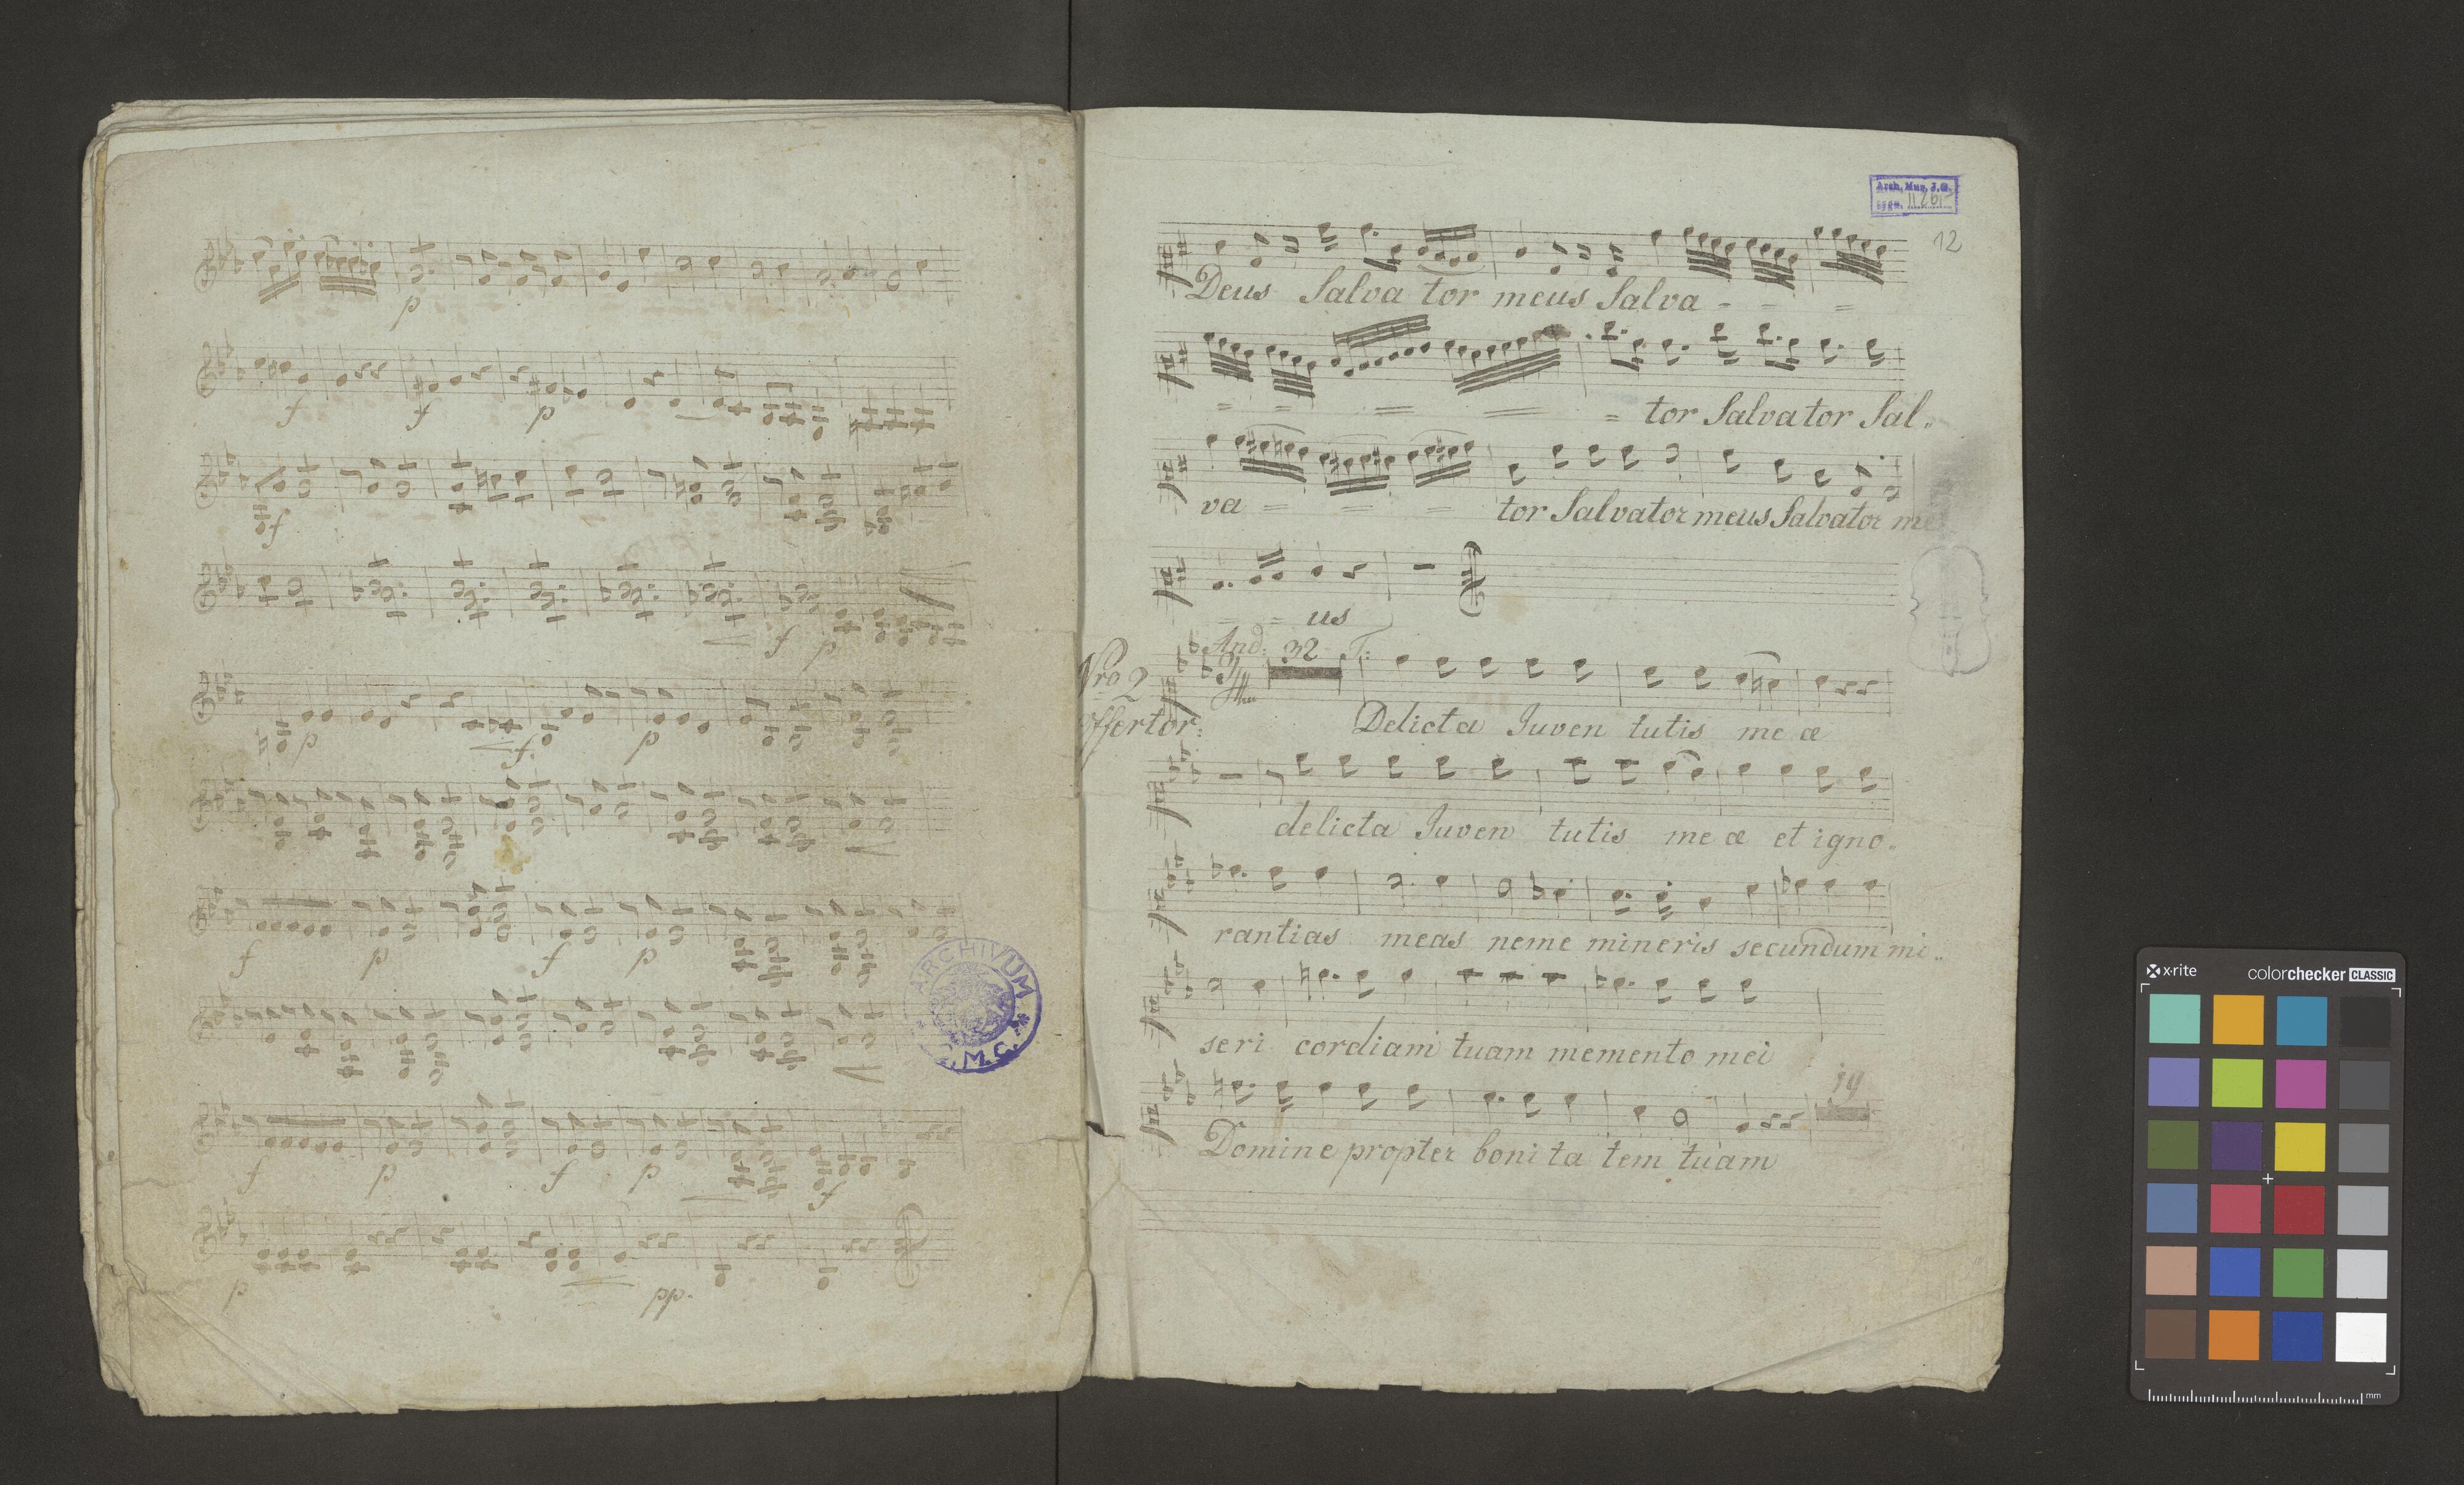 p
f f p
f
f p
p f. p
f p f p
f p f p f
p pp.
ARCHIVUM
M. C.
Arch. Mus. J. G.
sygn.
12
Deus Salva tor meus Salva - - =
= = = = = tor Salvator Sal.
va = = = tor Salvator meus Salvator me
= = us
And: 32 T:
Nro 2
Offertor:
Delicta Iuven tutis me æ
delicta Iuven tutis me æ et igno.
rantias meas neme mineris secundum mi..
seri cordiam tuam memento mei
19
Domine propter boni ta tem tuam
x·rite colorchecker CLASSIC
mm